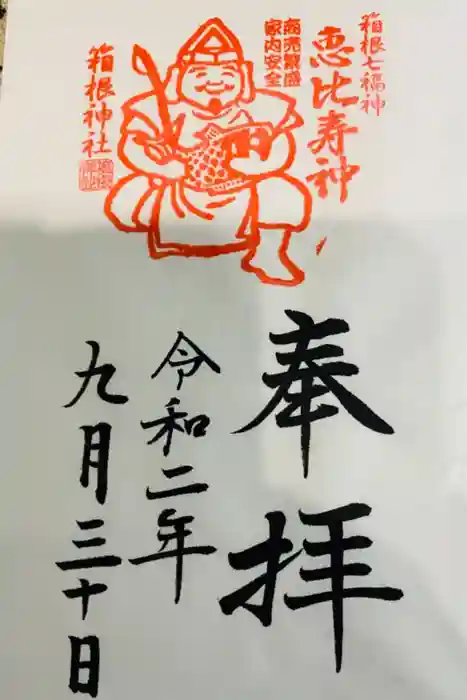 箱根七福神
恵比寿神
商売繁盛
家内安全
箱根神社
奉拝
令和二年
九月三十日